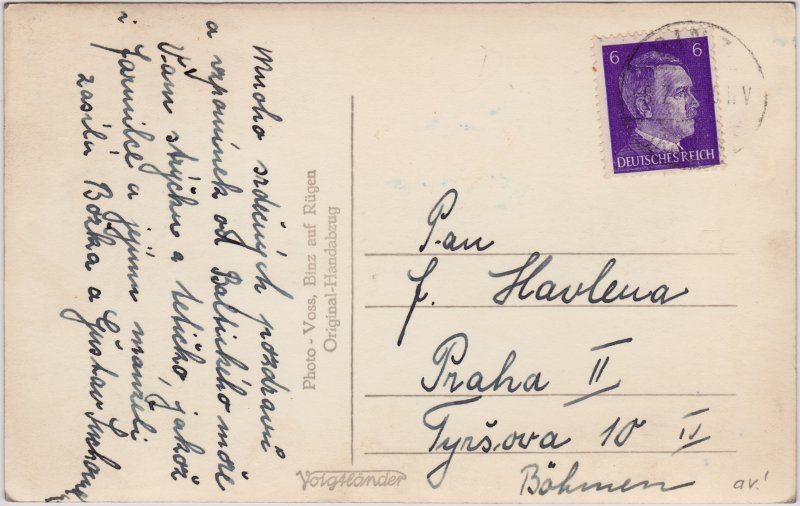 Mnoho srdečných pozdravů
a vzpomínek od Baltického moře
Vám strýčku a tetičko, jakož
i Jarmilce a jejímu manželi
zasílá Božka a Gustav
Photo - Voss, Binz auf Rügen
Original-Handabzug
Voigtländer
6 6
DEUTSCHES REICH
Pan
J. Havlena
Praha II
Tyršova 10 II
Böhmen
av!